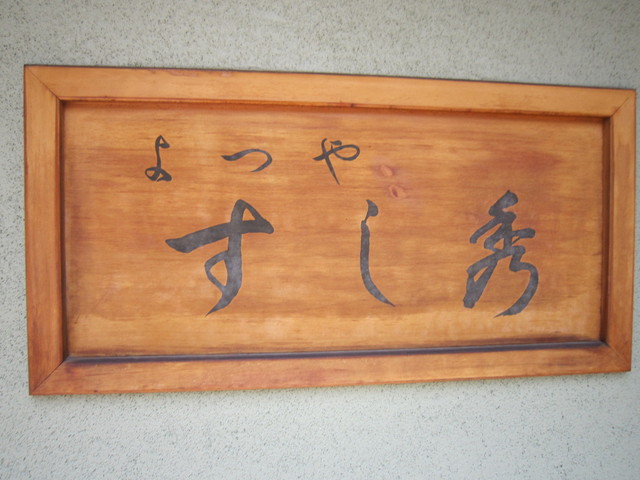 よつや
すし秀